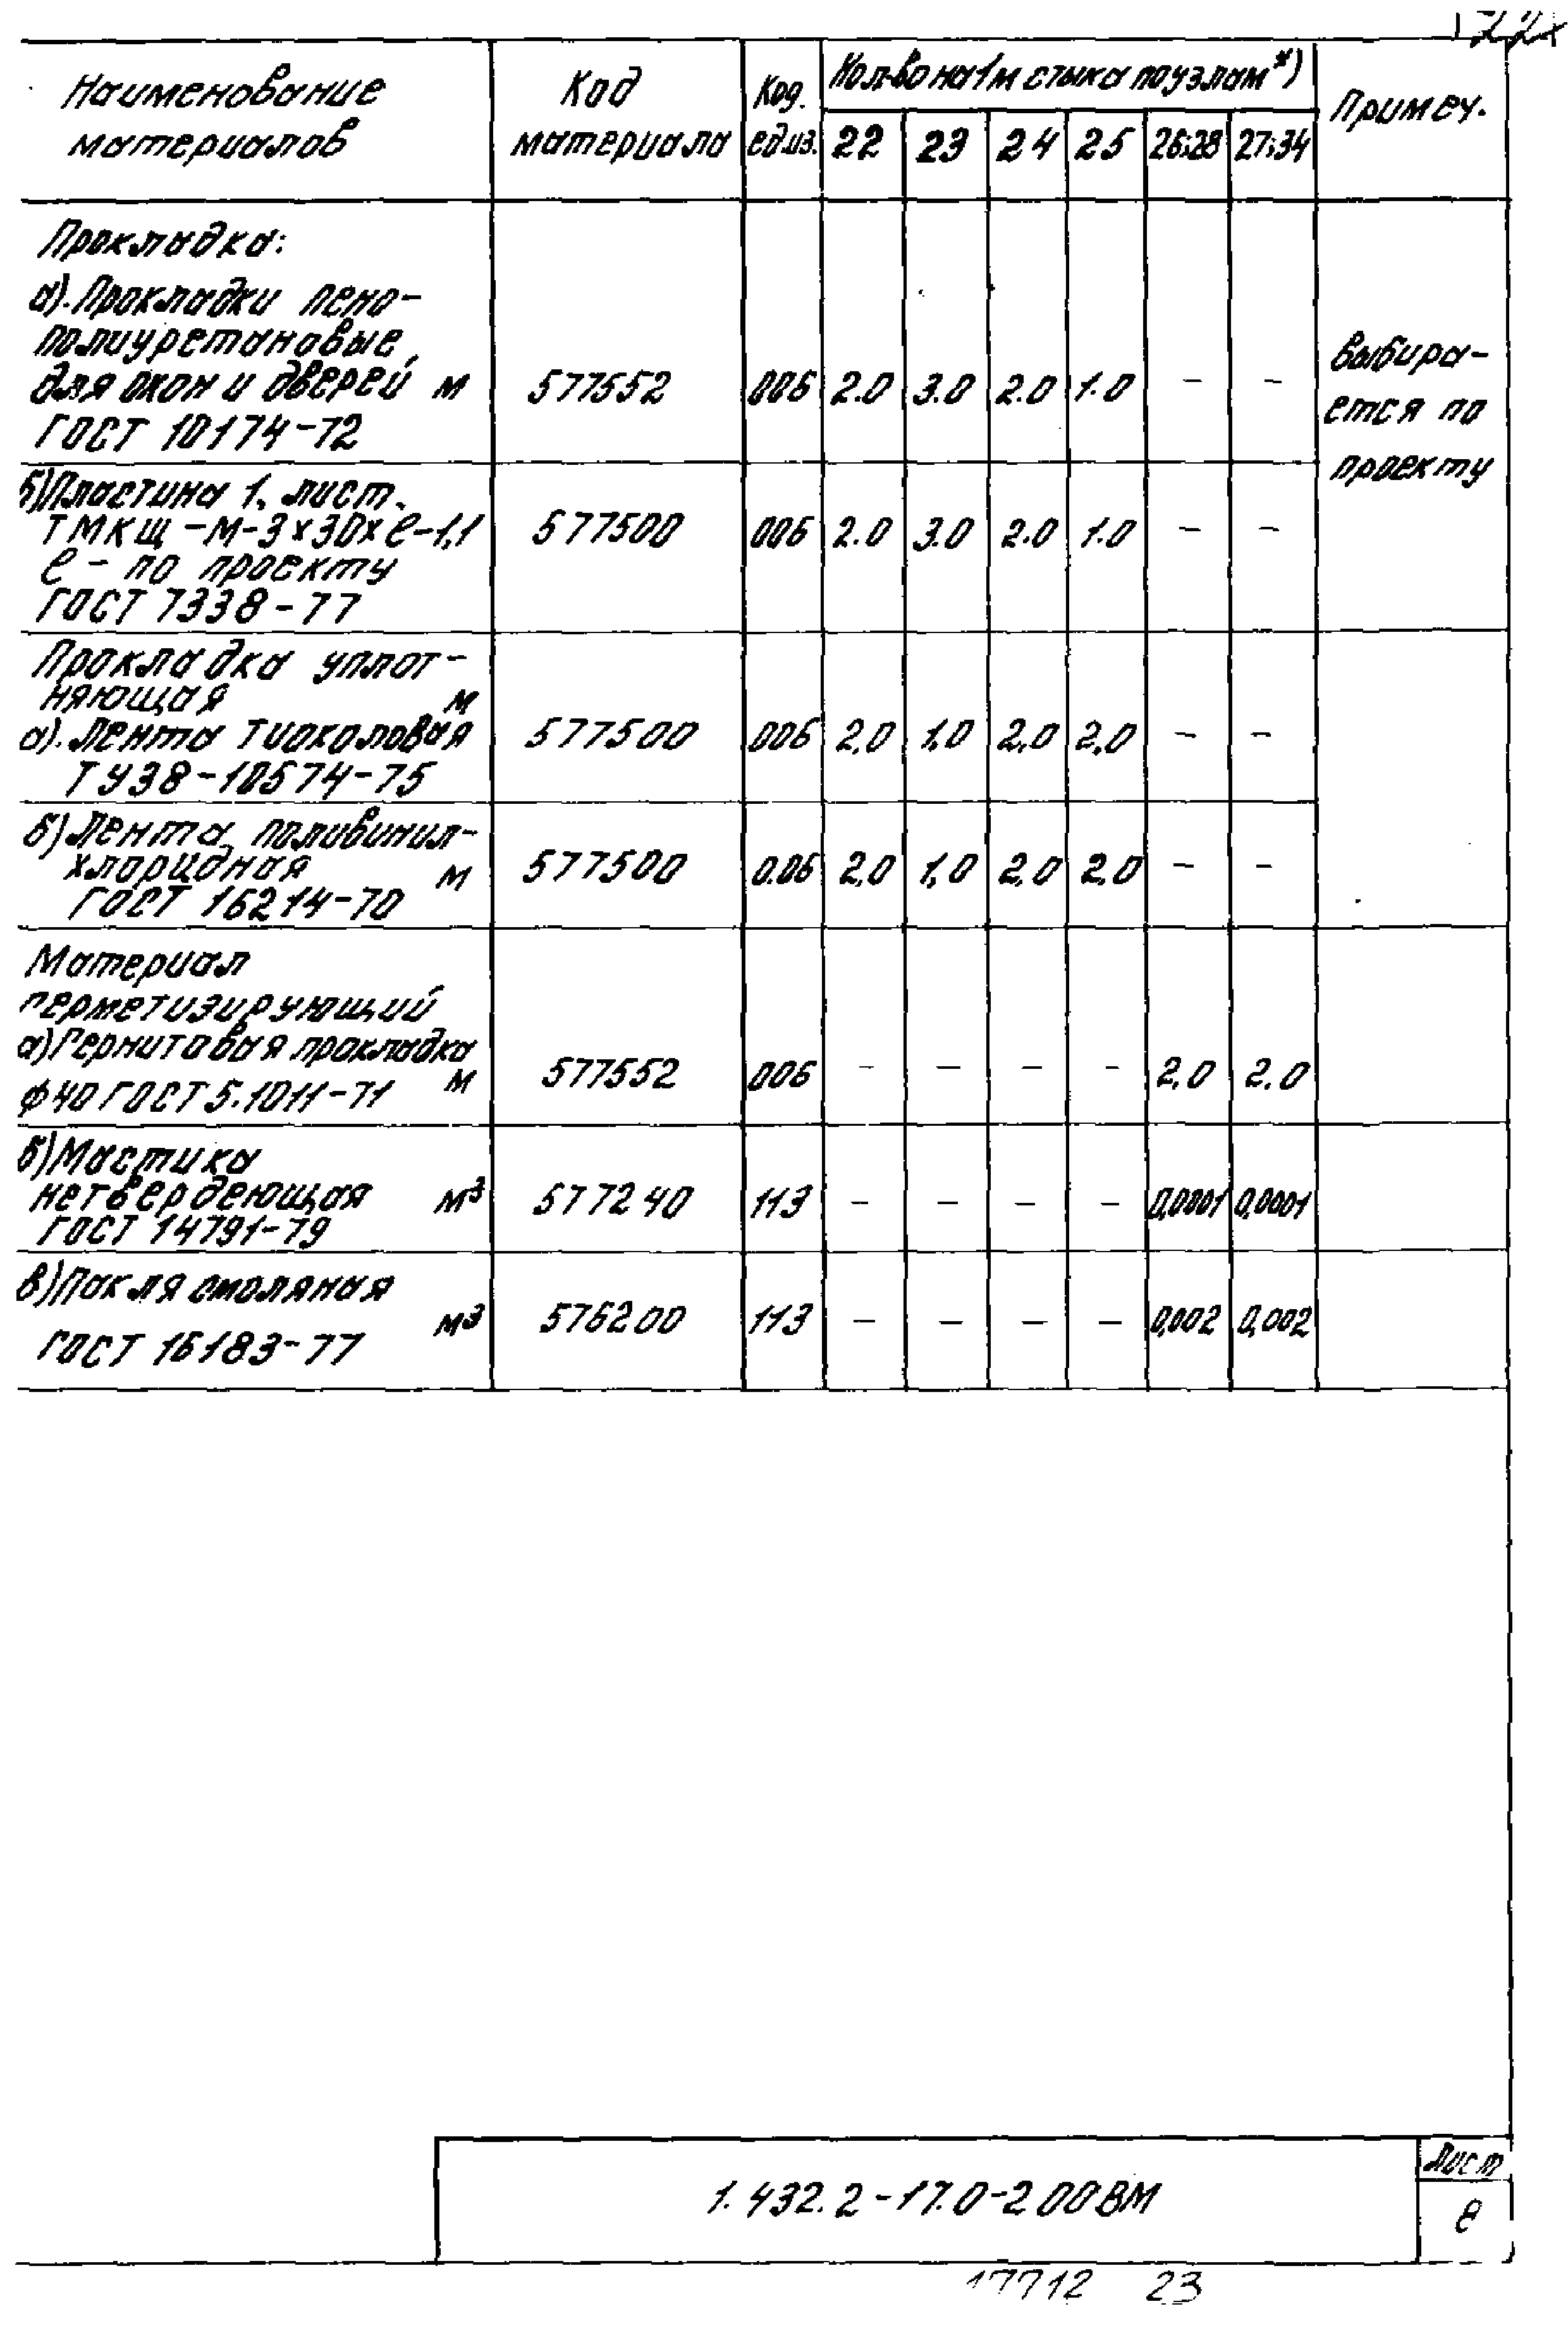 22
Наименование материалов | Код материала | Код. ед.из. | Кол-во на 1м стыка по узлам*) | Примеч.
22 | 23 | 24 | 25 | 26;28 | 27;34
Прокладка:
а). Прокладки пено-
полиуретановые
для окон и дверей м | 577552 | 006 | 2.0 | 3.0 | 2.0 | 1.0 | – | – | выбира-
ГОСТ 10174-72 | ется по
проекту
б) Пластина 1, лист.
ТМКЩ-М-3×30×ℓ-1,1 | 577500 | 006 | 2.0 | 3.0 | 2.0 | 1.0 | – | –
ℓ - по проекту
ГОСТ 7338-77
Прокладка уплот-
няющая м
а). Лента тиоколовая | 577500 | 006 | 2,0 | 1,0 | 2,0 | 2,0 | – | –
ТУ38-10574-75
б) Лента поливинил-
хлоридная м | 577500 | 0.06 | 2,0 | 1,0 | 2,0 | 2,0 | – | –
ГОСТ 16214-70
Материал
герметизирующий
а) Гернитовая прокладка
ф40 ГОСТ 5.1011-71 м | 577552 | 006 | – | – | – | – | 2,0 | 2.0
б) Мастика
нетвердеющая м³ | 577240 | 113 | – | – | – | – | 0,0001 | 0,0001
ГОСТ 14791-79
в) Пакля смоляная
м³ | 576200 | 113 | – | – | – | – | 0,002 | 0,002
ГОСТ 16183-77
1.432.2-17.0-200ВМ
Лист
8
17712 23